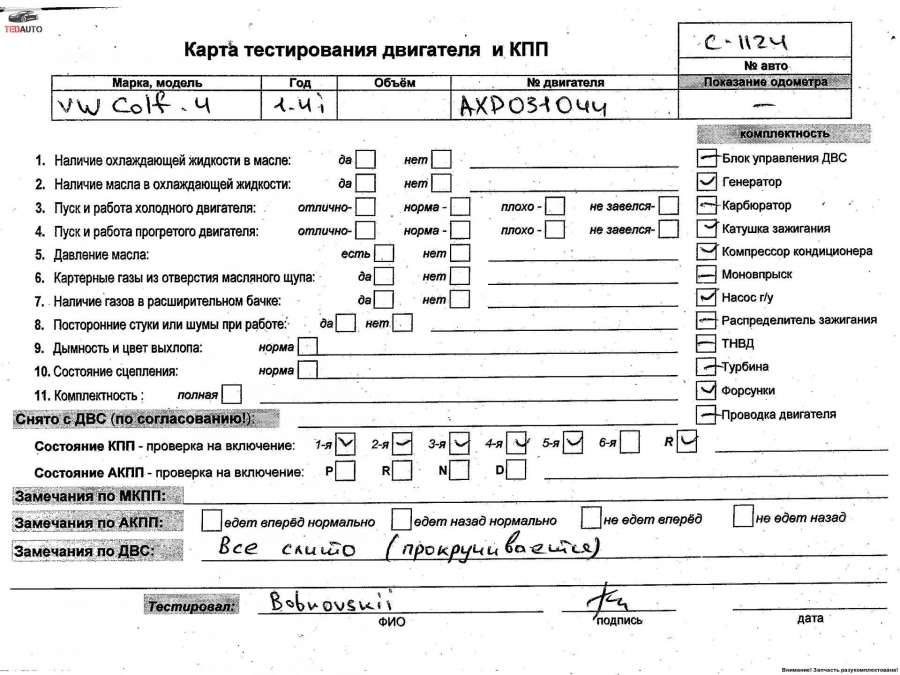 TEDAUTO
Карта тестирования двигателя и КПП
С-1124
№ авто
Марка, модель Год Объём № двигателя Показание одометра
VW Golf - 4 1.4i AXP031044 —
комплектность
1. Наличие охлаждающей жидкости в масле: да нет
2. Наличие масла в охлаждающей жидкости: да нет
3. Пуск и работа холодного двигателя: отлично- норма - плохо - не завелся-
4. Пуск и работа прогретого двигателя: отлично- норма - плохо - не завелся-
5. Давление масла: есть нет
6. Картерные газы из отверстия масляного щупа: да нет
7. Наличие газов в расширительном бачке: да нет
8. Посторонние стуки или шумы при работе: да нет
9. Дымность и цвет выхлопа: норма
10. Состояние сцепления: норма
11. Комплектность : полная
Блок управления ДВС
Генератор
Карбюратор
Катушка зажигания
Компрессор кондиционера
Моновпрыск
Насос г/у
Распределитель зажигания
ТНВД
Турбина
Форсунки
Проводка двигателя
Снято с ДВС (по согласованию!):
Состояние КПП - проверка на включение: 1-я 2-я 3-я 4-я 5-я 6-я R
Состояние АКПП - проверка на включение: P R N D
Замечания по МКПП:
Замечания по АКПП: едет вперёд нормально едет назад нормально не едет вперёд не едет назад
Замечания по ДВС: Все слито (прокручивается)
Тестировал: Bobrovskii
ФИО подпись дата
Внимание! Запчасть разукомплектована!